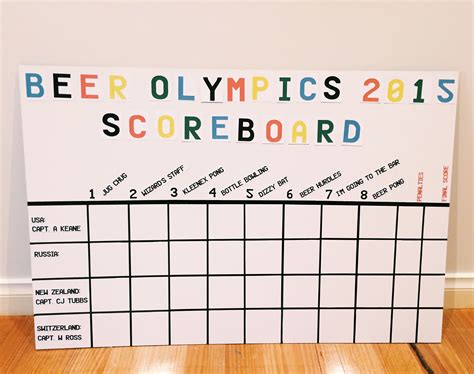 BEER OLYMPICS 2015
SCOREBOARD
1 JUG CHUG
2 WIZARD'S STAFF
3 KLEENEX PONG
4 BOTTLE BOWLING
5 DIZZY BAT
6 BEER HURDLES
7 I'M GOING TO THE BAR
8 BEER PONG
PENALTIES
FINAL SCORE
USA:
CAPT. A KEANE
RUSSIA:
NEW ZEALAND:
CAPT. CJ TUBBS
SWITZERLAND:
CAPT. W ROSS